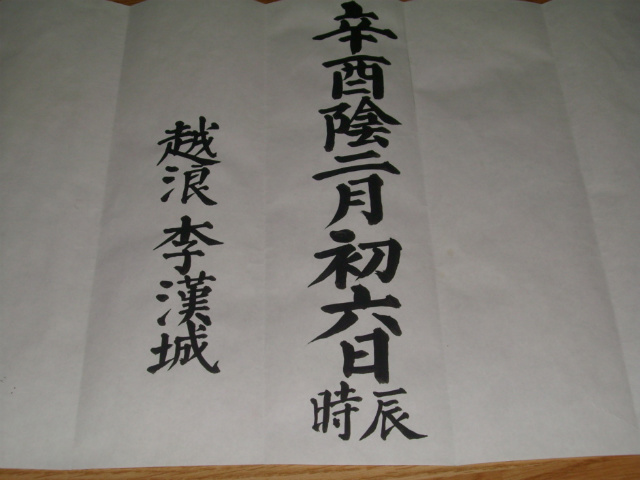 辛酉陰二月初六日辰時
越浪 李漢城